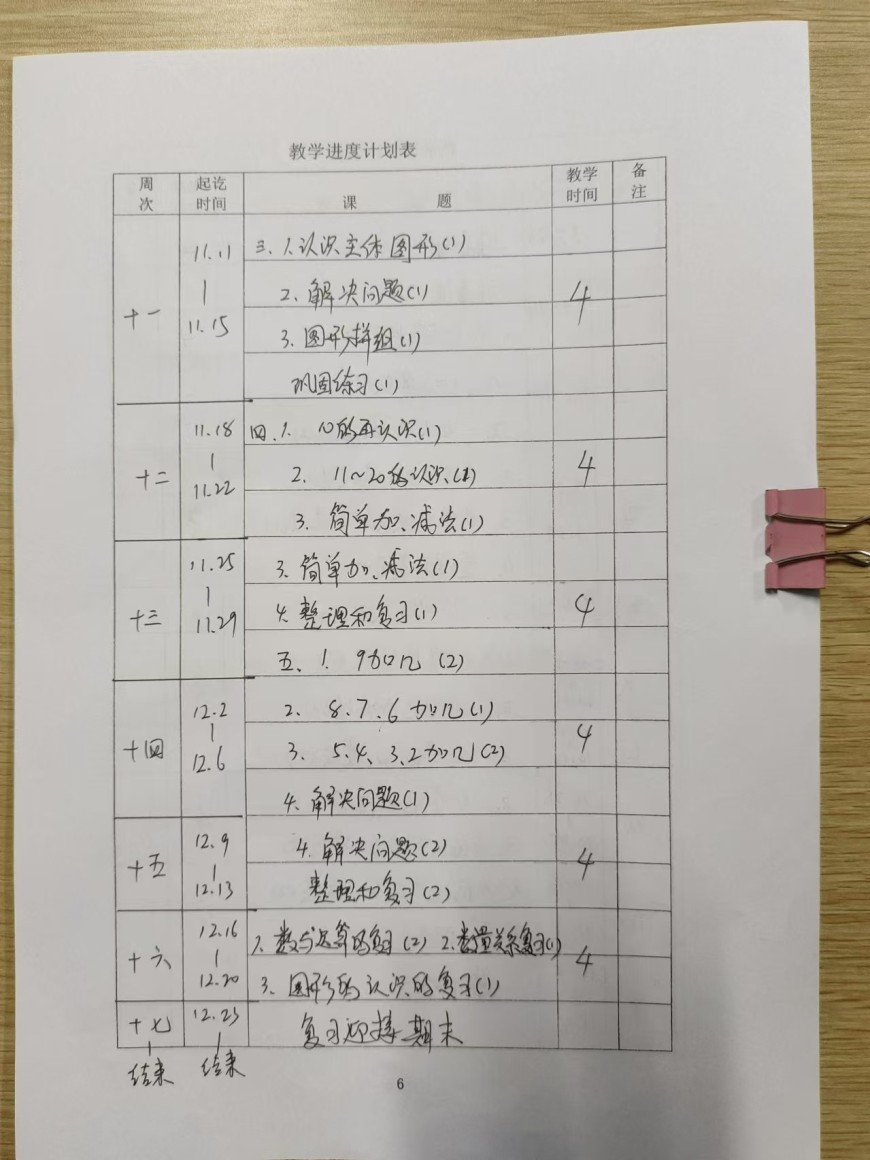 教学进度计划表
周次 起讫时间 课题 教学时间 备注
十一 11.11 | 11.15 三、1.认识立体图形(1) 4
2、解决问题(1)
3、图形拼组(1)
巩固练习(1)
十二 11.18 | 11.22 四、1. 10的再认识(1) 4
2. 11~20的认识(1)
3. 简单加、减法(1)
十三 11.25 | 11.29 3、简单加、减法(1) 4
4.整理和复习(1)
五、1. 9加几(2)
十四 12.2 | 12.6 2、8.7.6加几(1) 4
3、5.4、3.2加几(2)
4、解决问题(1)
十五 12.9 | 12.13 4.解决问题(2) 4
整理和复习(2)
十六 12.16 | 12.20 1.数与运算的复习(2) 2.数量关系复习(1) 4
3、图形的认识的复习(1)
十七 | 结束 12.23 | 结束 复习迎接期末
6